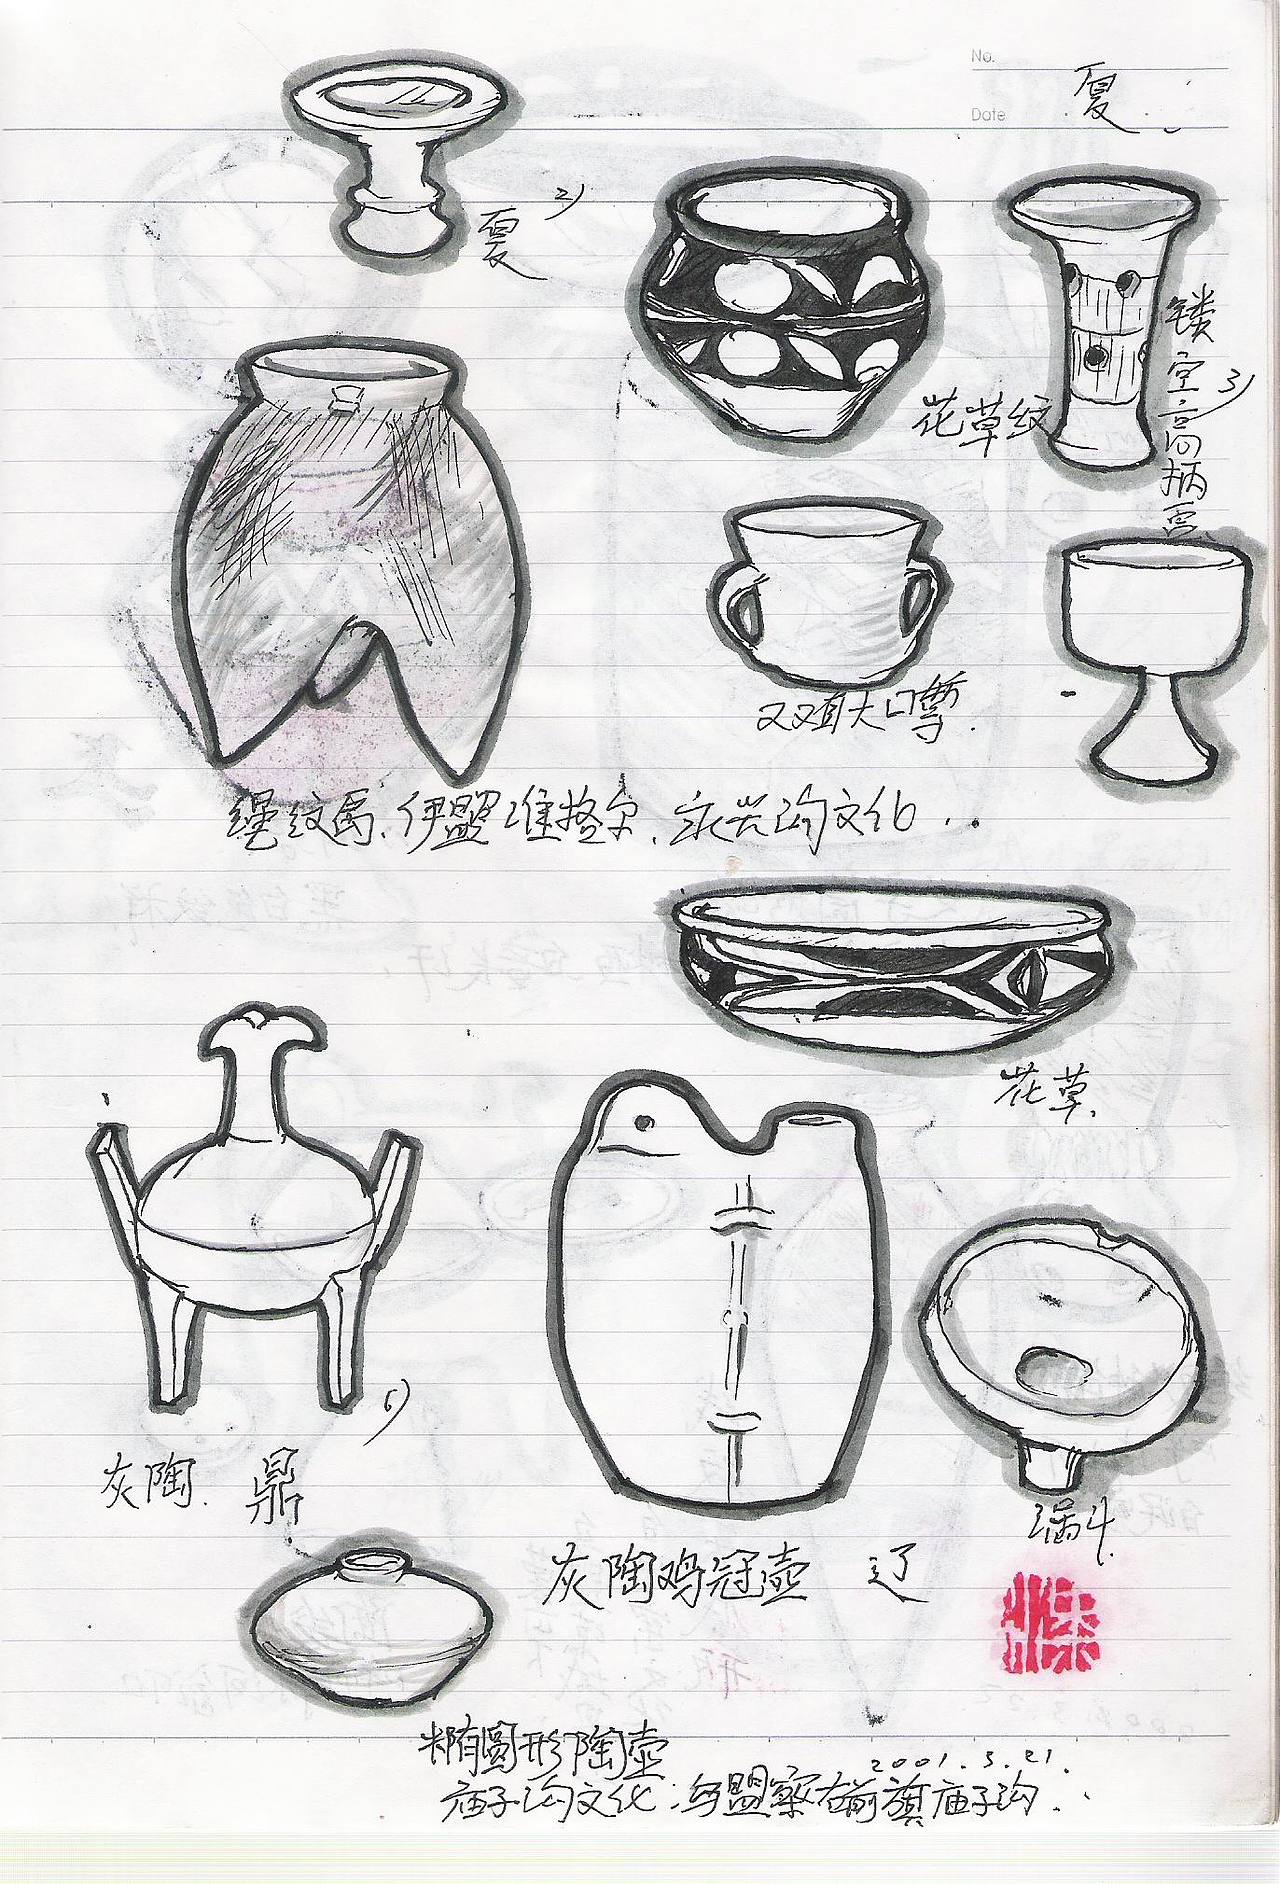 No.
夏
Date
2)
夏
花草纹
镂空高柄豆
3)
双耳大口尊.
绳纹鬲.伊盟准格尔.永兴沟文化..
花草.
6)
灰陶. 鼎
灰陶鸡冠壶 辽
涡斗.
椭圆形陶壶
2001.3.21.
庙子沟文化.乌盟察右前旗庙子沟..